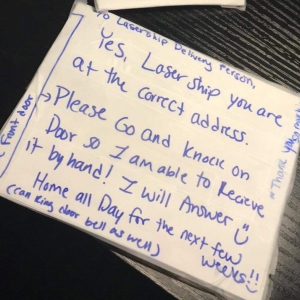 To Lasership Delivery Person,
Yes, Laser ship you are
at the correct address.
→Please Go and knock on
Door so I am able to Recieve
it by hand! I will Answer
Home all Day for the next few
weeks!!
(can ring door bell as well)
Front door
Thank you